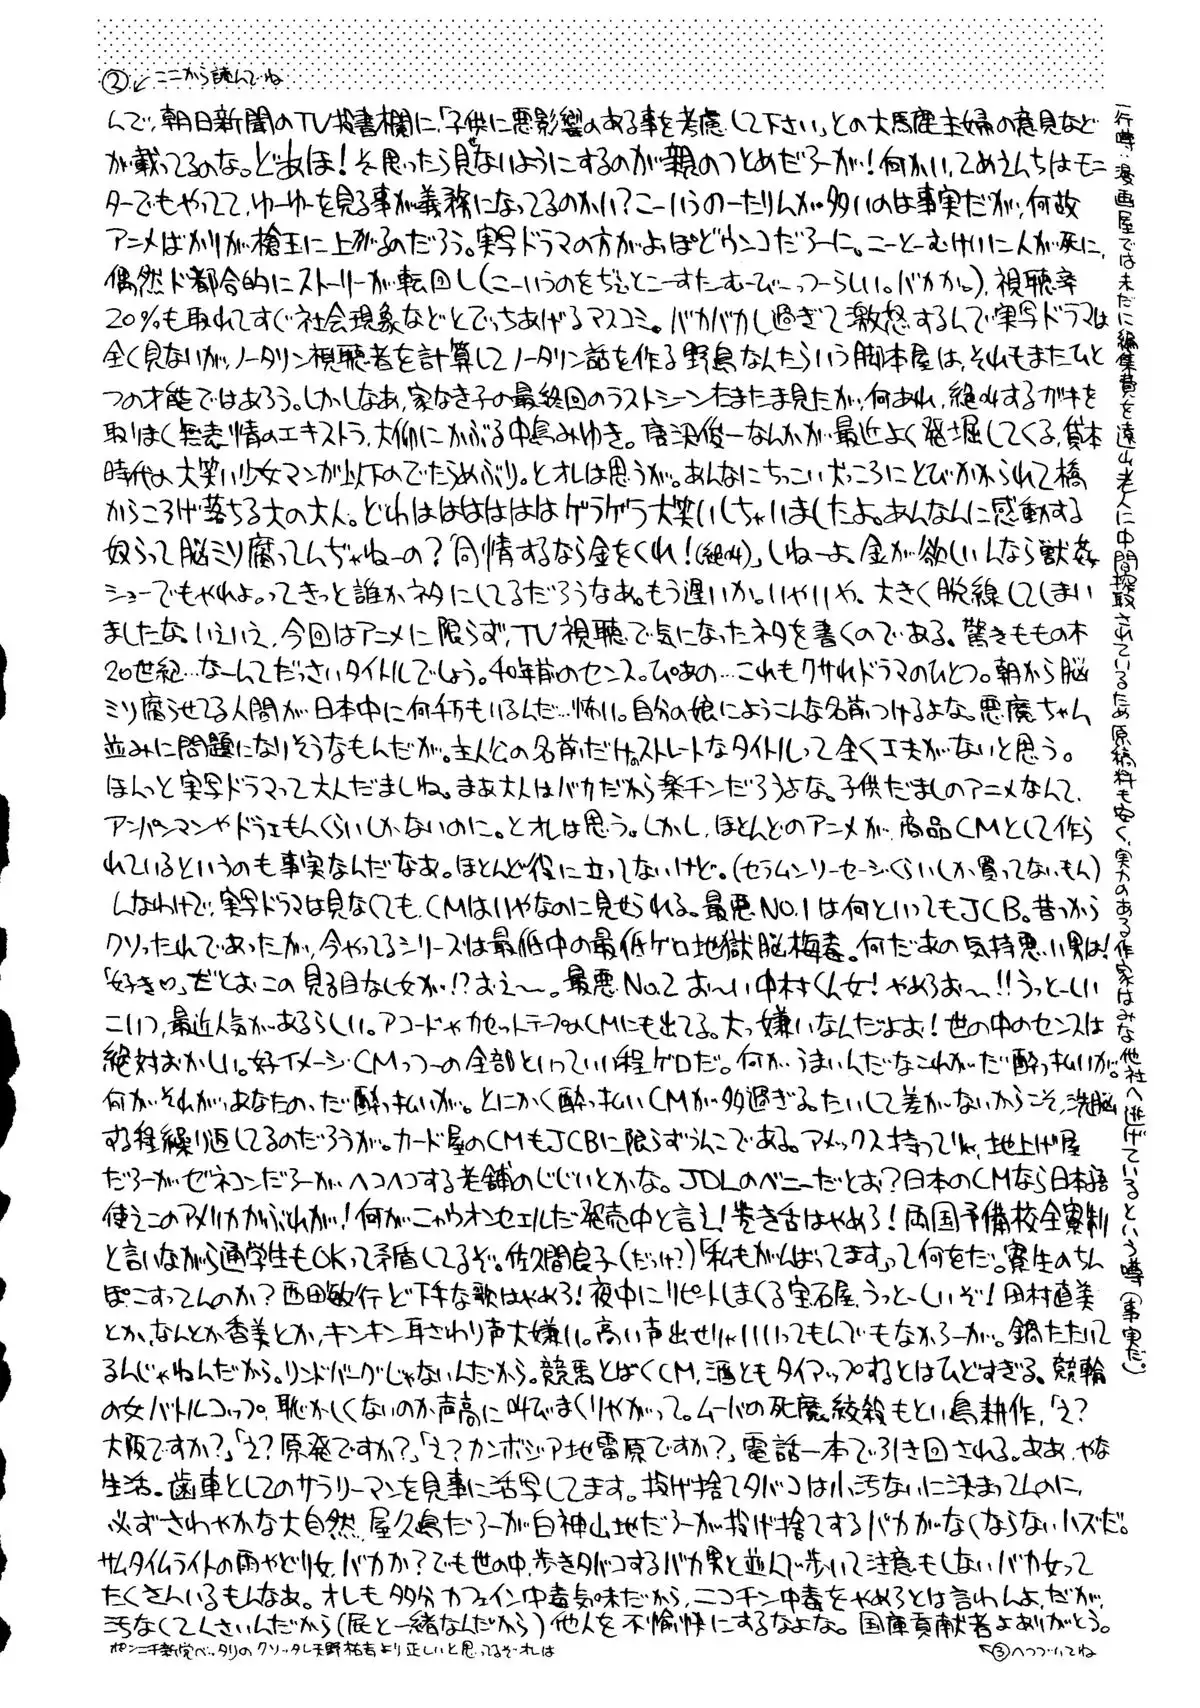 ② ↙ ここから読んでね
んで、朝日新聞のTV投書欄に、「子供に悪影響のある事を考慮して下さい」との大馬鹿主婦の意見など
が載ってるのな。どあほ!そう思ったら見せないようにするのが親のつとめだろーが!何かい、てめえんちはモニ
ターでもやってて、ゆーゆーを見る事が義務になってるのかい?こーいうのーたりんが多いのは事実だが、何故
アニメばかりが槍玉に上がるのだろう。実写ドラマの方がよっぽどウンコだろーに。こーとーむけいに人が死に、
偶然ド都合的にストーリーが転回し(こーいうのをぢぇとこーすたーむーびーっつーらしい。バカか。)、視聴率
20%も取れてすぐ社会現象などとでっちあげるマスコミ。バカバカし過ぎて激怒するんで実写ドラマは
全く見ないが、ノータリン視聴者を計算してノータリン話を作る野島なんたらいう脚本屋は、それもまたひと
つの才能ではあろう。しかしなあ、家なき子の最終回のラストシーンたまたま見たが、何あれ、絶叫するガキを
取りまく無表情のエキストラ、大仰にかぶる中島みゆき。唐沢俊一なんかが最近よく発掘してくる、貸本
時代の大笑い少女マンガ以下のでたらめぶり。とオレは思うが。あんなにちっこい犬っころにとびかかられて橋
からころげ落ちる大の大人。どわはははははははゲラゲラ大笑いしちゃいましたよ。あんなんに感動する
奴らって脳ミソ腐ってんぢゃねーの?「同情するなら金をくれ!(絶叫)」しねーよ。金が欲しいんなら獣姦
ショーでもやれよ。ってきっと誰かネタにしてるだろうなあ。もう遅いか。いやいや、大きく脱線してしまい
ましたな。いえいえ、今回はアニメに限らず、TV視聴で気になったネタを書くのである。驚きももの木
20世紀…なーんてだっさいタイトルでしょう。40年前のセンス。ぴあの…これもクサれドラマのひとつ。朝から脳
ミソ腐らせてる人間が日本中に何千万もいるんだ…怖い。自分の娘にようこんな名前つけるよな。悪魔ちゃん
並みに問題になりそうなもんだが。主人公の名前だけのストレートなタイトルって全く工夫がないと思う。
ほんっと実写ドラマって大人だましね。まあ大人はバカだから楽チンだろうよな。子供だましのアニメなんて、
アンパンマンやドラえもんくらいしかないのに。とオレは思う。しかし、ほとんどのアニメが、商品CMとして作ら
れているというのも事実なんだなあ。ほとんど役に立ってないけど。(セラムンソーセージくらいしか買ってないもん)
しなわけで、実写ドラマは見なくても、CMはいやなのに見せられる。最悪NO.1は何といってもJCB。昔っから
クソったれであったが、今やってるシリーズは最低中の最低ゲロ地獄脳梅毒。何だあの気持悪い男は!
「好き♡」だとおこの見る目なし女が!?おえ〜。最悪NO.2お〜い中村くん女!やめろお〜!!うっとーしい
こいつ、最近人気があるらしい。アコードやカセットテープのCMにも出てる。大っ嫌いなんだよお!世の中のセンスは
絶対おかしい。好イメージCMっつーの全部といっていい程ゲロだ。何が、うまいんだなこれがだ酔っ払いが。
何がそれが、あなたの、だ酔っ払いが。とにかく酔っ払いCMが多過ぎる。たいして差がないからこそ、洗脳
する程繰り返してるのだろうが。カード屋のCMもJCBに限らずうんこである。アメックス持ってりゃ、地上げ屋
だろーがゼネコンだろーが、ヘコヘコする老舗のじじいとかな。JDLのベニーだとお?日本のCMなら日本語
使えこのアメリカかぶれが!何がニャウオンセェルだ発売中と言え!巻き舌はやめろ!両国予備校全寮制
と言いながら通学生もOKって矛盾してるぞ。佐久間良子(だっけ?)「私もがんばってます」って何をだ。寮生のちん
ぽこすってんのか?西田敏行ど下手な歌はやめろ!夜中にリピートしまくる宝石屋、うっとーしいぞ!田村直美
とか、なんとか香美とか、キンキン耳ざわり声大嫌い。高い声出せりゃいいってもんでもなかろーが。鍋たたいて
るんじゃねんだから。リンドバーグじゃないんだから。競馬とばくCM、酒ともタイアップするとはひどすぎる。競輪
の女バトルコップ、恥かしくないのか声高に叫びまくりやがって。ムーバの死魔絞殺もとい島耕作、「え?
大阪ですか?」「え?原発ですか?」「え?カンボジア地雷原ですか?」電話一本で引き回される。ああ、やな
生活。歯車としてのサラリーマンを見事に活写してます。投げ捨てタバコは小汚ないに決まってんのに、
必ずさわやかな大自然、屋久島だろーが白神山地だろーが投げ捨てするバカがなくならないハズだ。
サムタイムライトの雨やどり女、バカか?でも世の中、歩きタバコするバカ男と並んで歩いて注意もしないバカ女って
たくさんいるもんなあ。オレも多分カフェイン中毒気味だから、ニコチン中毒をやめろとは言わんよ、だが、
汚なくてくさいんだから(屁と一緒なんだから)他人を不愉快にするなよな。国庫貢献者よありがとう。
ポンニチ新党ベッタリのクソッタレ天野祐吉より正しいと思ってるぞオレは
↖③へつづいてね
一行噂:漫画屋では未だに編集費を遠山老人に中間搾取されているため原稿料も安く、実力のある作家はみな他社へ逃げているという噂(事実だ。)